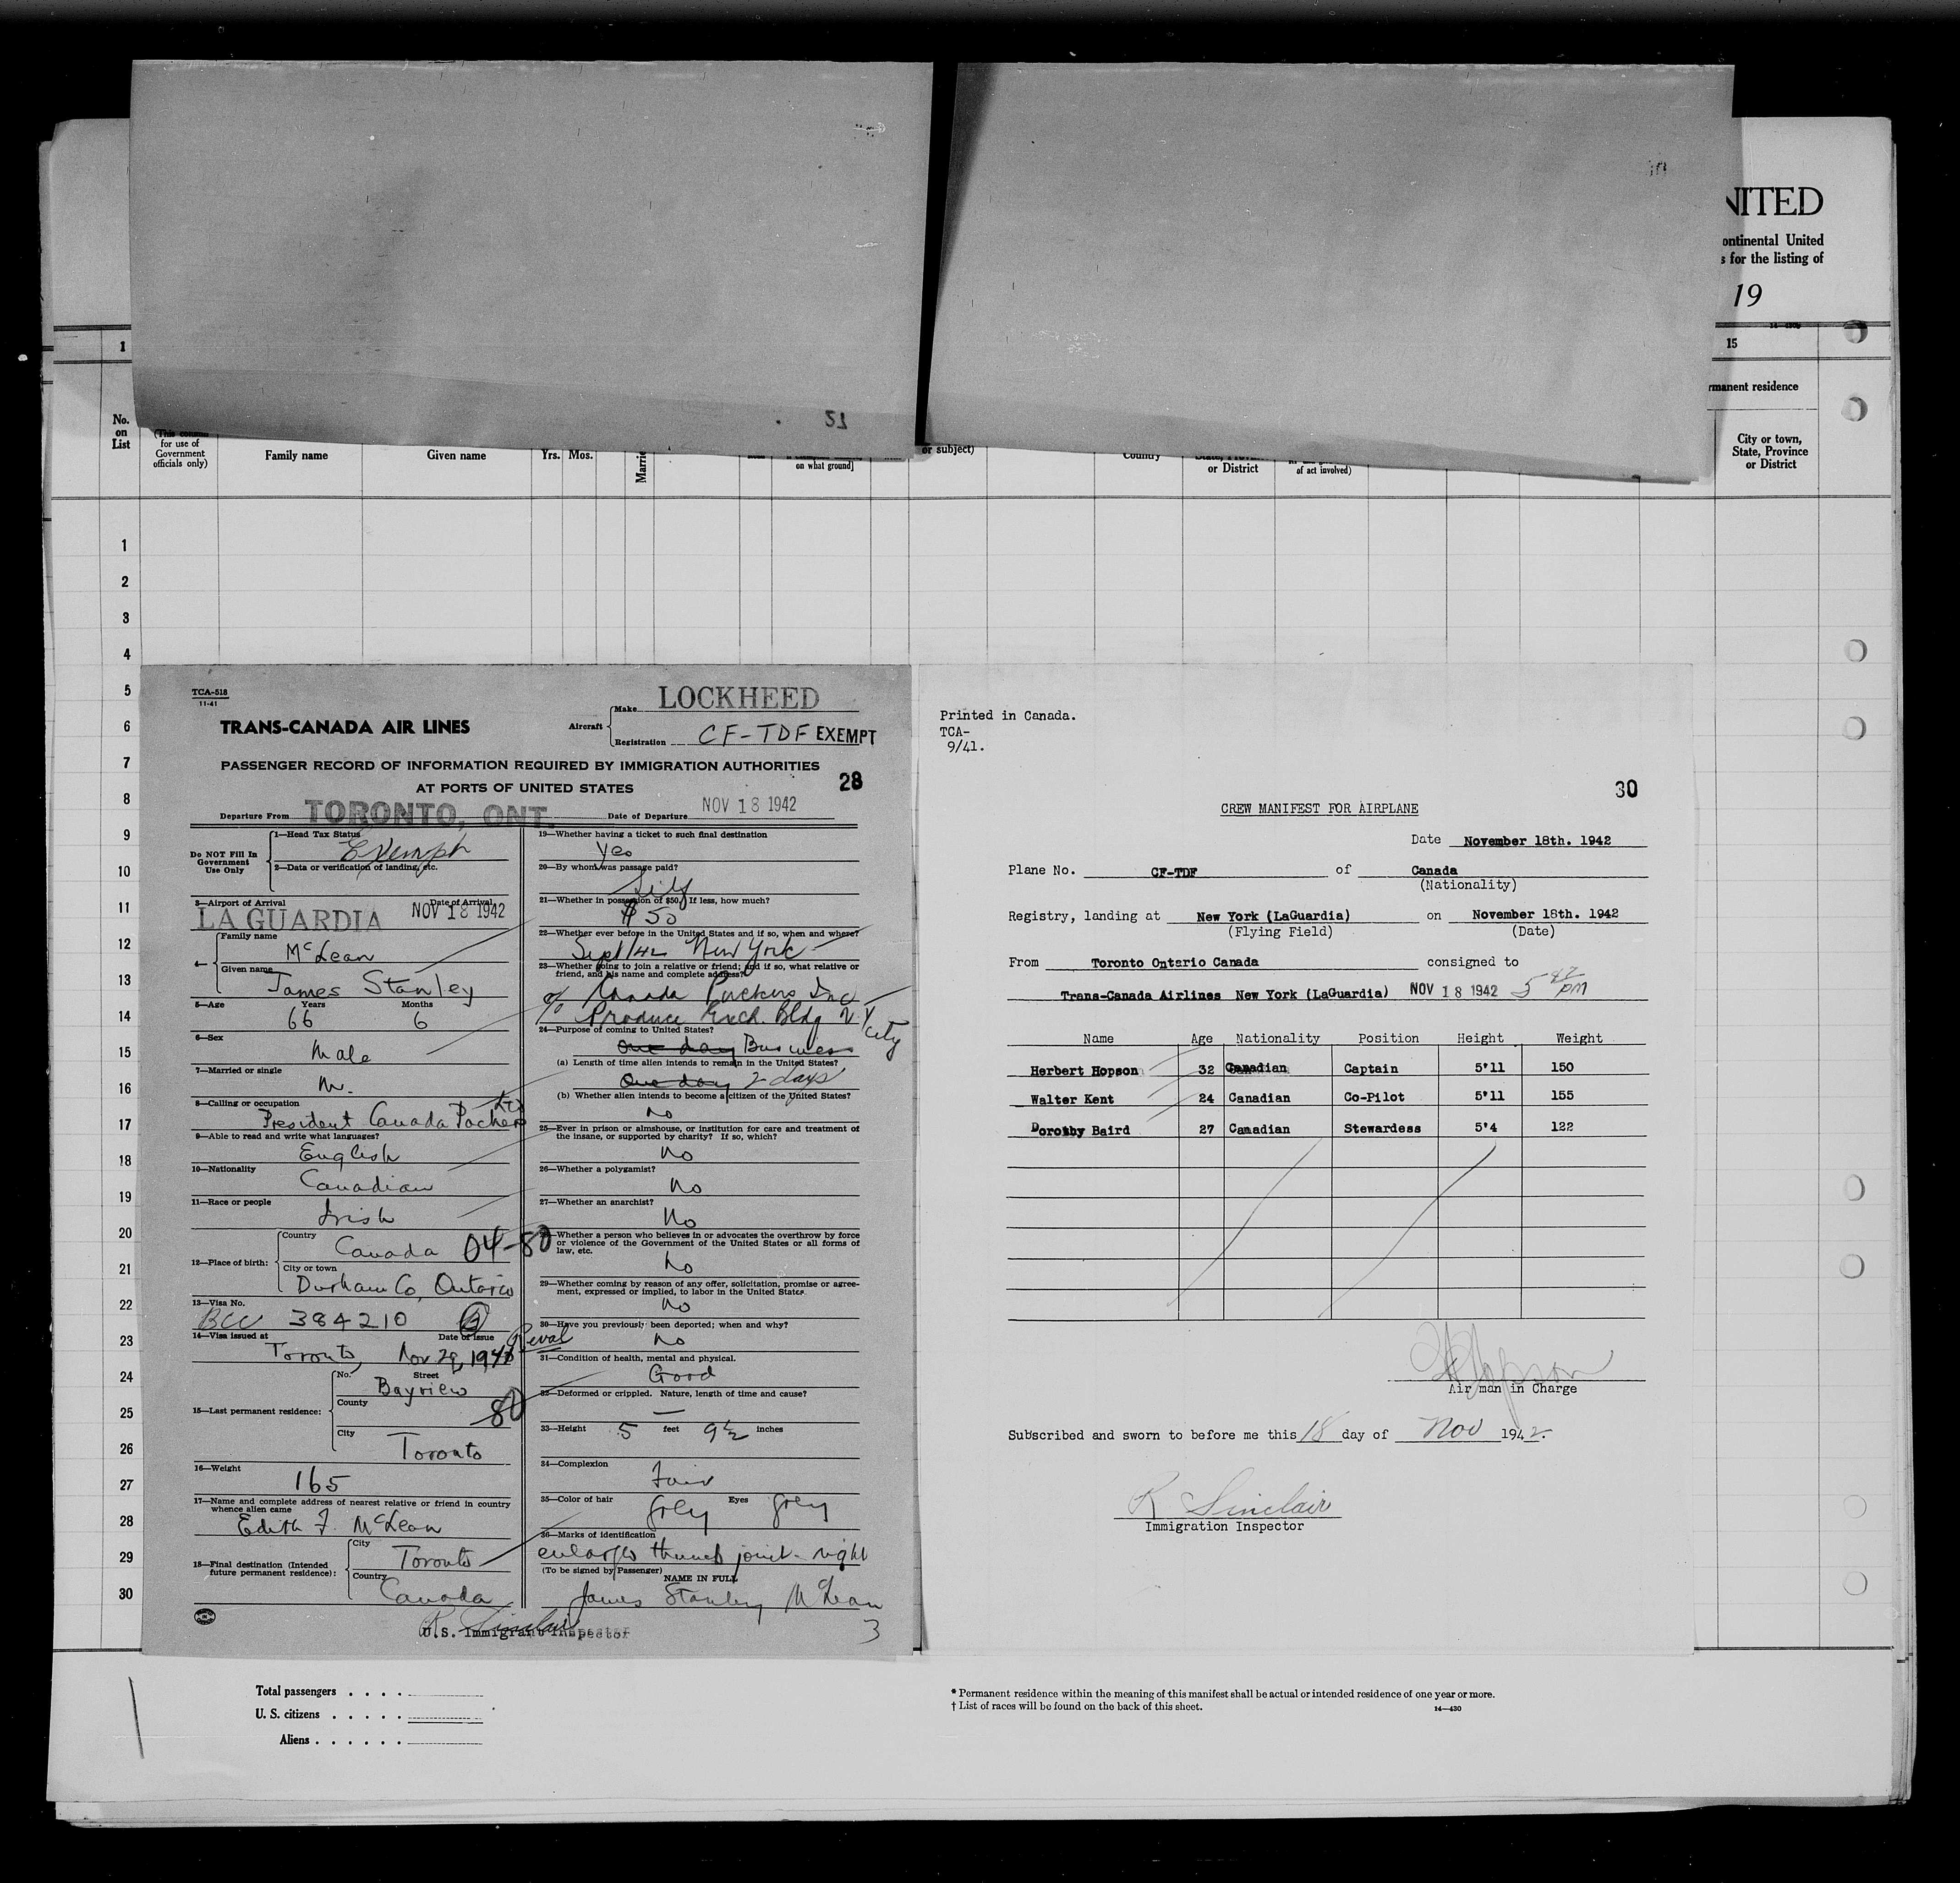 NITED
ontinental United
s for the listing of
19
1
15
rmanent residence
No.
on
List
for use of
Government
officials only)
Family name
Given name
Yrs. Mos.
Marrie
on what ground]
or subject)
Country
or District
of act involved)
City or town,
State, Province
or District
1
2
3
4
5
6
7
8
9
10
11
12
13
14
15
16
17
18
19
20
21
22
23
24
25
26
27
28
29
30
TCA-518
11-41
TRANS-CANADA AIR LINES
Aircraft
Make LOCKHEED
Registration CF-TDF EXEMPT
PASSENGER RECORD OF INFORMATION REQUIRED BY IMMIGRATION AUTHORITIES
AT PORTS OF UNITED STATES
28
Departure From TORONTO, ONT.
Date of Departure NOV 18 1942
Do NOT Fill In
Government
Use Only
1—Head Tax Status
Exempt
2—Data or verification of landing, etc.
3—Airport of Arrival
Date of Arrival
LA GUARDIA NOV 18 1942
4—
Family name
McLean
Given name
James Stanley
5—Age Years Months
66 6
6—Sex
Male
7—Married or single
M.
8—Calling or occupation
President Canada Packers Ltd
9—Able to read and write what languages?
English
10—Nationality
Canadian
11—Race or people
Irish
12—Place of birth:
Country
Canada 04-80
City or town
Durham Co, Ontario
13—Visa No.
BCC 384210
14—Visa issued at
Date of Issue
Toronto, Nov 29, 194
15—Last permanent residence:
No. Street
Bayview
County
80
City
Toronto
16—Weight
165
17—Name and complete address of nearest relative or friend in country
whence alien came
Edith F. McLean
18—Final destination (Intended
future permanent residence):
City
Toronto
Country
Canada
19—Whether having a ticket to such final destination
Yes
20—By whom was passage paid?
Self
21—Whether in possession of $50. If less, how much?
$50
22—Whether ever before in the United States and if so, when and where?
Sept/42 New York
23—Whether going to join a relative or friend; and if so, what relative or
friend, and his name and complete address?
c/o Canada Packers Inc
Produce Exch. Bldg N.Y City
24—Purpose of coming to United States?
One day Business
(a) Length of time alien intends to remain in the United States?
One day 2 days
(b) Whether alien intends to become a citizen of the United States?
No
25—Ever in prison or almshouse, or institution for care and treatment of
the insane, or supported by charity? If so, which?
No
26—Whether a polygamist?
No
27—Whether an anarchist?
No
Whether a person who believes in or advocates the overthrow by force
or violence of the Government of the United States or all forms of
law, etc.
No
29—Whether coming by reason of any offer, solicitation, promise or agree-
ment, expressed or implied, to labor in the United States.
No
30—Have you previously been deported; when and why?
No
31—Condition of health, mental and physical.
Good
32—Deformed or crippled. Nature, length of time and cause?
—
33—Height 5 feet 9½ inches
34—Complexion
Fair
35—Color of hair Grey Eyes Grey
36—Marks of identification
enlarged thumb joint - right
(To be signed by Passenger)
NAME IN FULL
James Stanley McLean
R Sinclair
U.S. Immigrant Inspector
3
Printed in Canada.
TCA-
9/41.
30
CREW MANIFEST FOR AIRPLANE
Date November 18th. 1942
Plane No. CF-TDF of Canada
(Nationality)
Registry, landing at New York (LaGuardia) on November 18th. 1942
(Flying Field) (Date)
From Toronto Ontario Canada consigned to
Trans-Canada Airlines New York (LaGuardia) NOV 18 1942 5 47 pm
Name Age Nationality Position Height Weight
Herbert Hopson 32 Canadian Captain 5'11 150
Walter Kent 24 Canadian Co-Pilot 5'11 155
Dorothy Baird 27 Canadian Stewardess 5'4 122
H Hopson
Air man in Charge
Subscribed and sworn to before me this 18 day of Nov 1942.
R Sinclair
Immigration Inspector
Total passengers
U. S. citizens
Aliens
* Permanent residence within the meaning of this manifest shall be actual or intended residence of one year or more.
† List of races will be found on the back of this sheet.
14—430